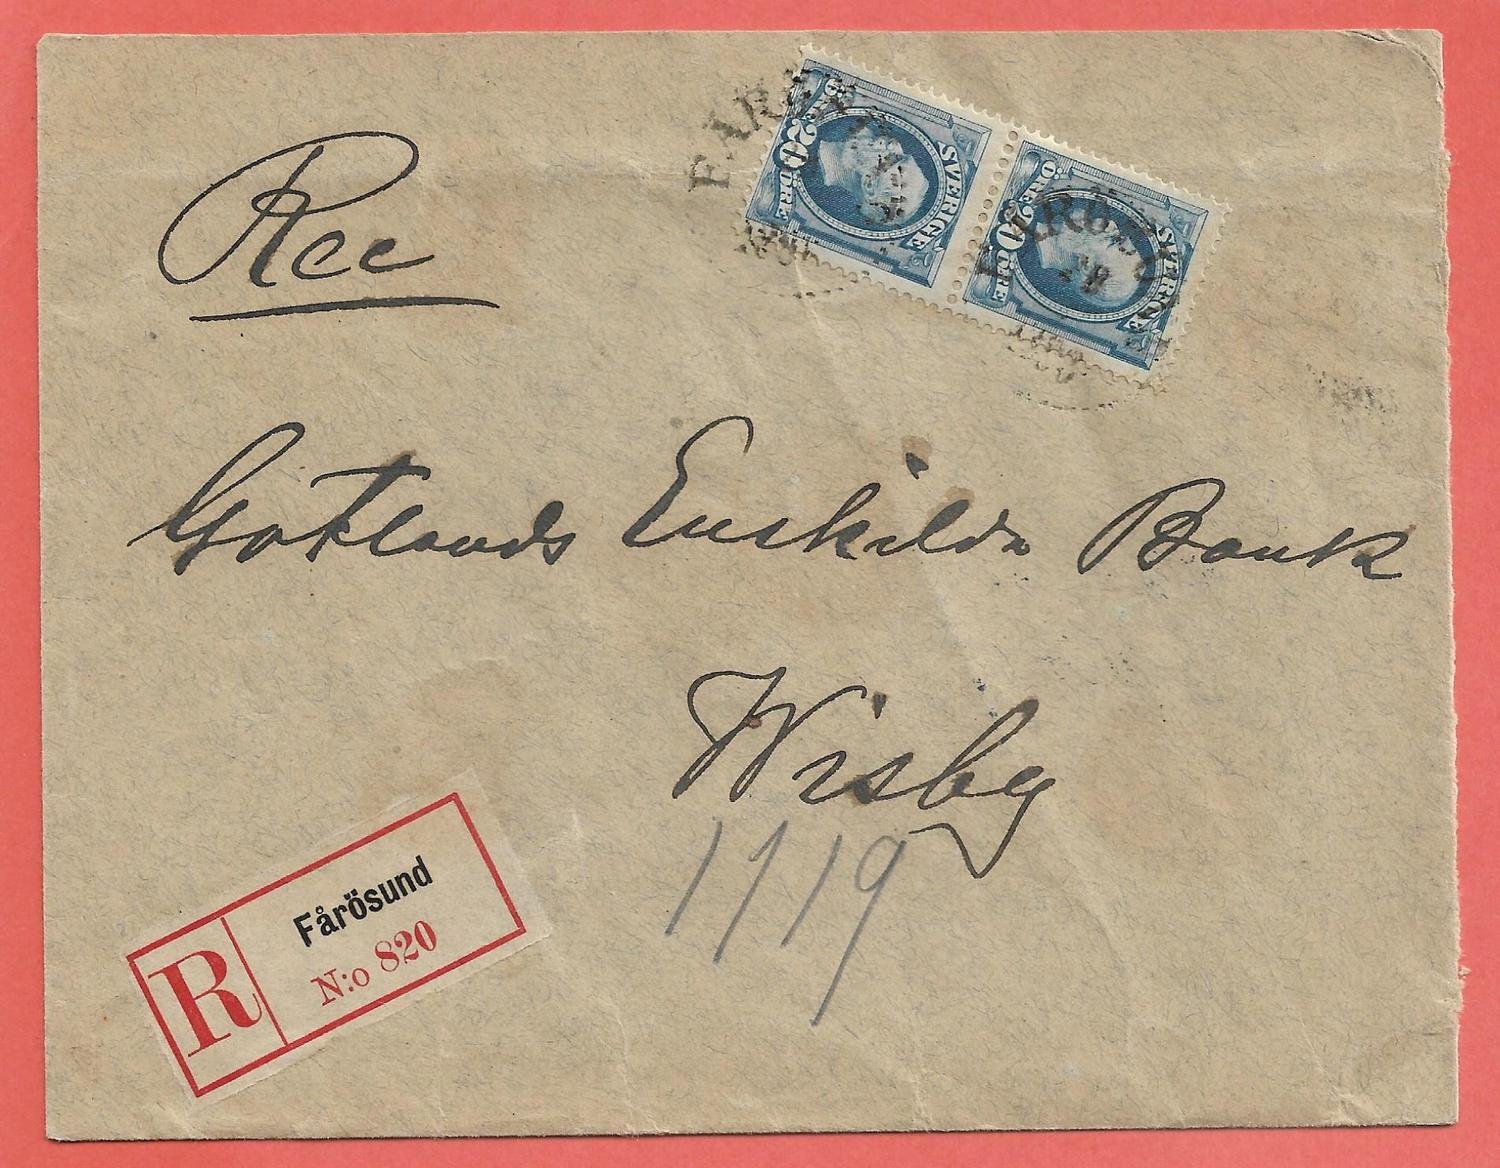 Rec
SVERIGE
20
ÖRE
SVERIGE
20
ÖRE
Gotlands Enskilda Bank
Wisby
1719
Fårösund
R N:o 820